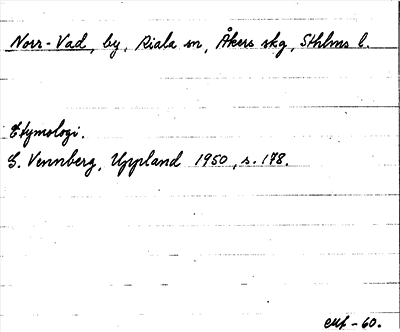 Norr-Vad, by, Riala sn, Åkers skg, Sthlms l.
Etymologi.
G. Vennberg, Uppland 1950, s. 178.
-60.